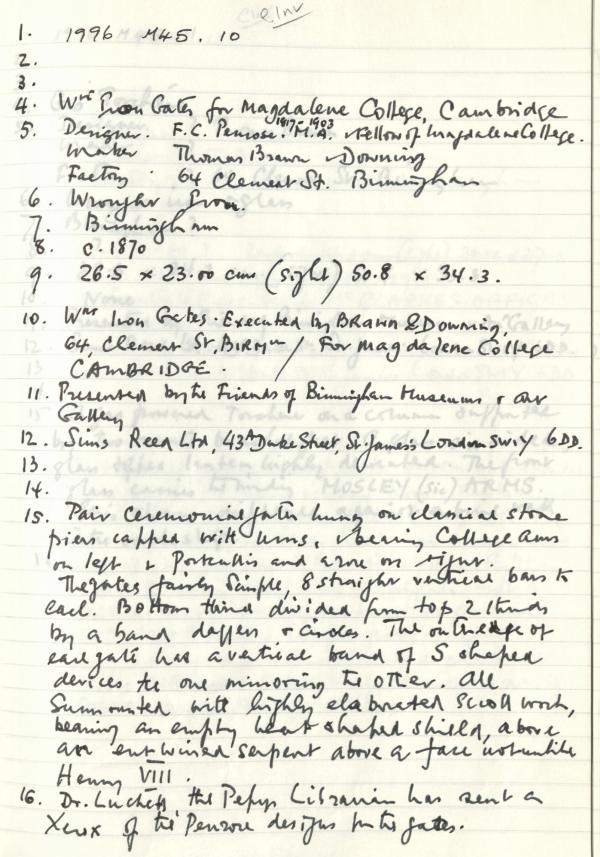 Inv
1. 1996 M45.10
2.
3.
4. Wrt Iron Gates for Magdalene College, Cambridge
5. Designer. F.C. Penrose. 1817-1903 M.A. & Fellow of Magdalene College.
Maker Thomas Brawn & Downing
Factory. 64 Clement St. Birmingham
6. Wrought Iron.
7. Birmingham
8. c. 1870
9. 26.5 x 23.00 cms (sight) 50.8 x 34.3.
10. Wrt Iron Gates. Executed by BRAWN & Downing,
64, Clement St, BIRMm / For Magdalene College
CAMBRIDGE.
11. Presented by the Friends of Birmingham Museums & Art
Gallery
12. Sims Reed Ltd, 43A Duke Street, St. James's London SW1Y 6DD.
13.
14.
15. Pair ceremonial gates hung on classical stone
piers capped with urns, & bearing College arms
on left & Portcullis and on right.
The gates fairly simple, 8 straight vertical bars to
each. Bottom third divided from top 2 thirds
by a band & circles. The outer edge of
each gate has a vertical band of S shaped
devices the one mirroring the other. All
surmounted with highly elaborated scroll work,
bearing an empty heart shaped shield, above
an entwined serpent above a face not unlike
Henry VIII.
16. Dr. Luckett, the Pepys Librarian has sent a
Xerox of the Penrose designs for the gates.